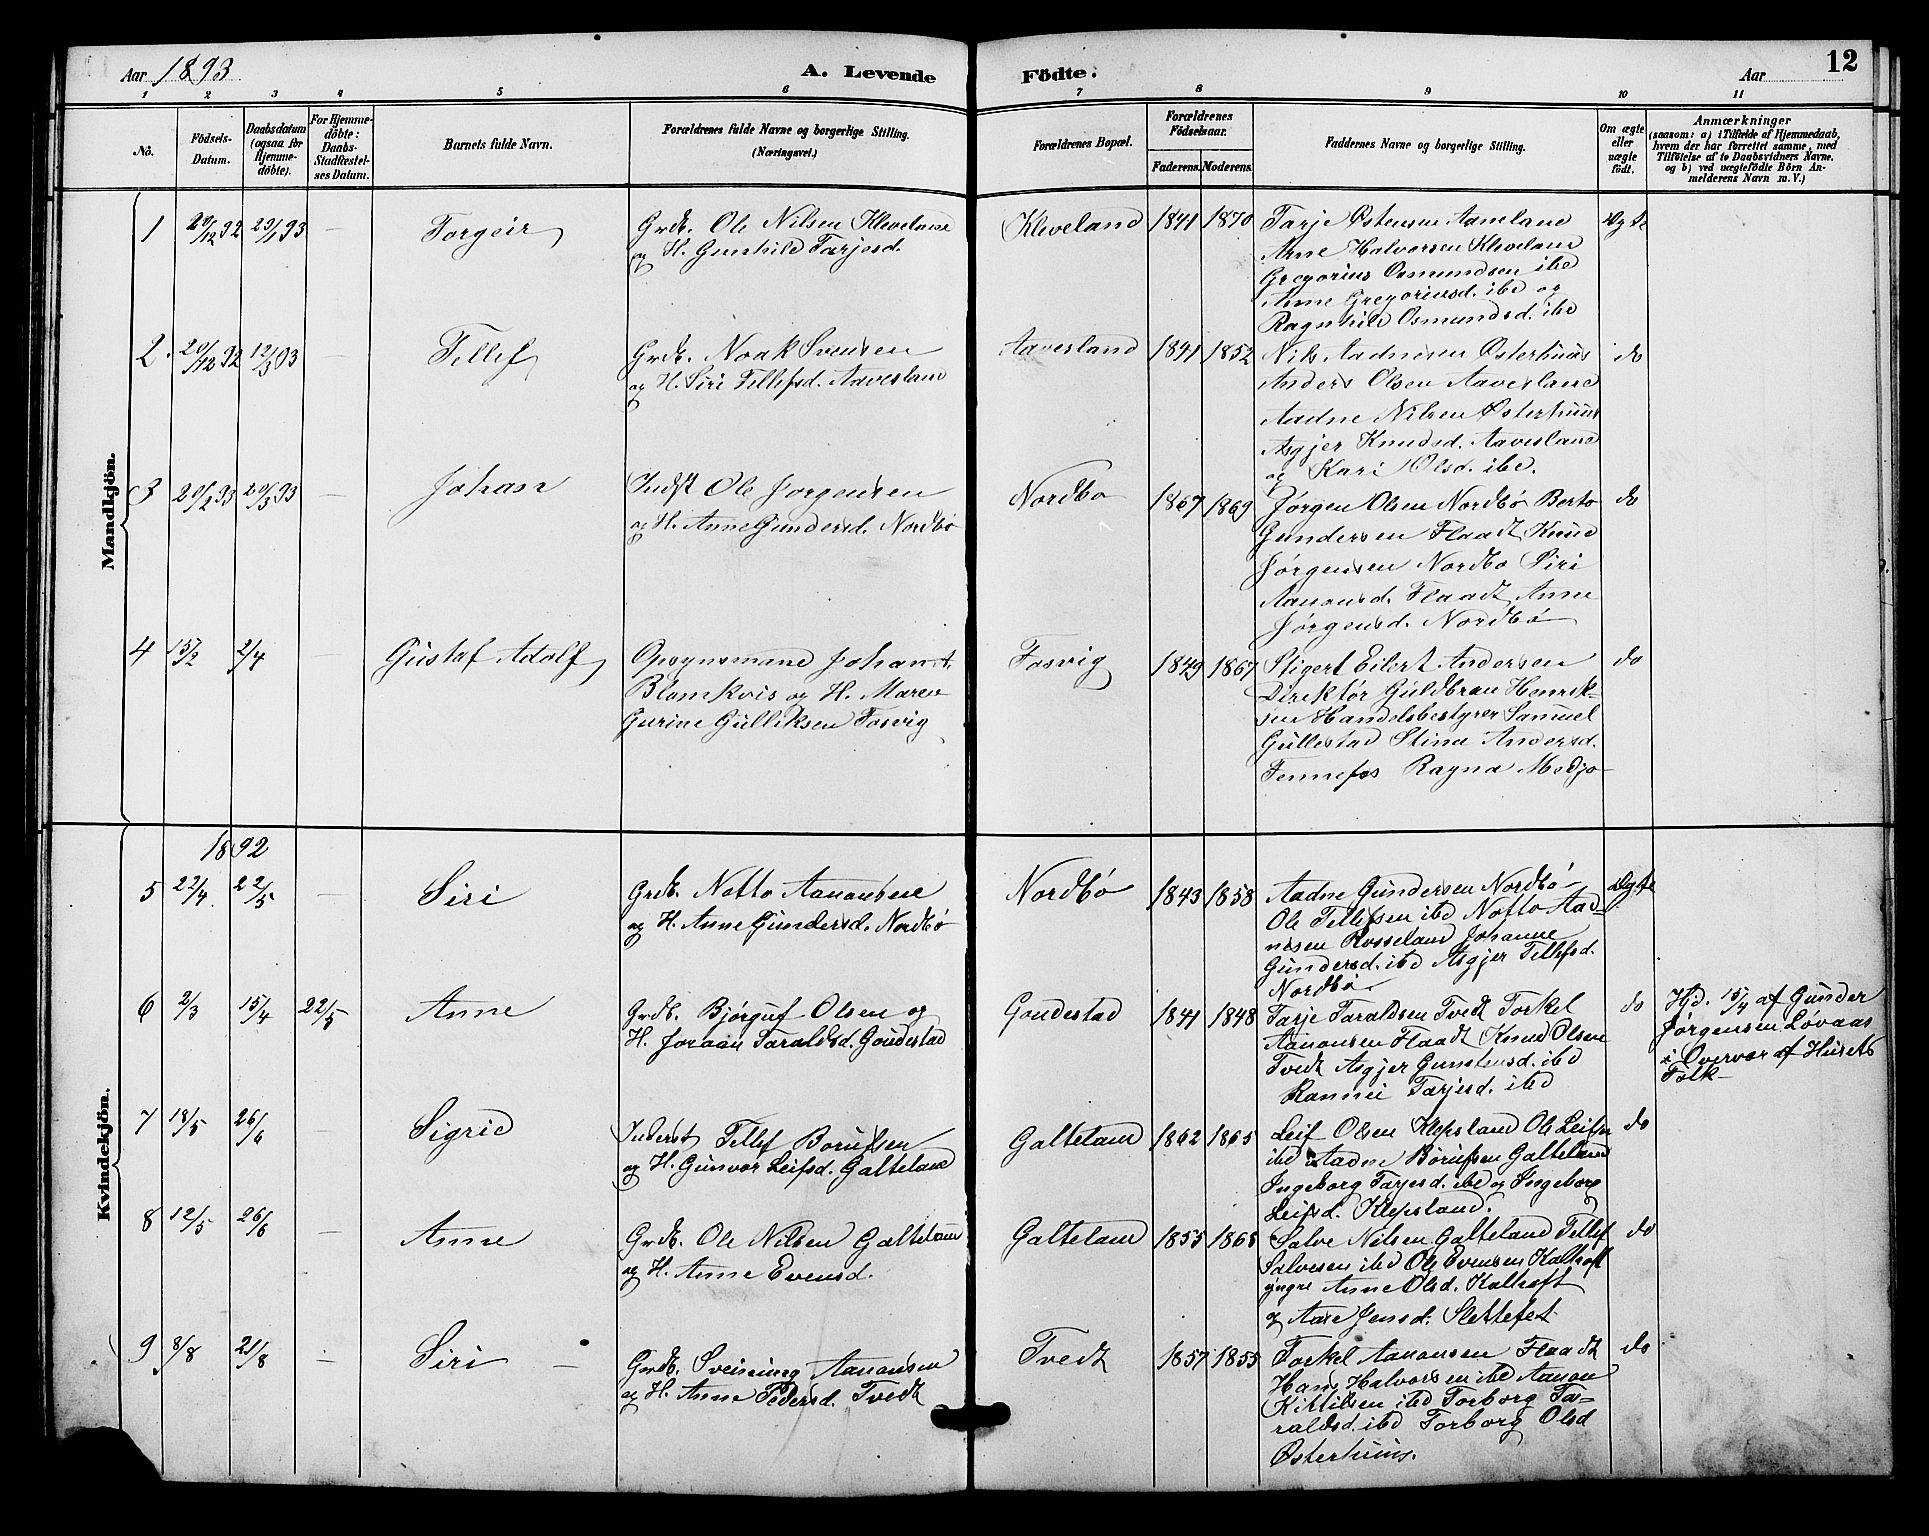 Aar 1893 A. Levende Födte. Aar 12
1 2 3 4 5 6 7 8 9 10 11
No.
Födsels-
Datum.
Daabsdatum
(ogsaa for
Hjemme-
döbte).
For Hjemme-
döbte:
Daabs-
Stadfæstel-
ses Datum.
Barnets fulde Navn.
Forældrenes fulde Navne og borgerlige Stilling.
(Næringsvei.)
Forældrenes Bopæl.
Forældrenes
Födselsaar.
Faderens. Moderens.
Faddernes Navne og borgerlige Stilling.
Om ægte
eller
uægte
födt.
Anmærkninger
(saasom: a) i Tilfælde af Hjemmedaab,
hvem der har forrettet samme, med
Tilföielse af to Daabsvidners Navne,
og b) ved uægtefödte Börn An-
melderens Navn m. V.)
Mandkjön.
1 29/12 92 29/1 93 — Torgeir
Grdb. Ole Nilsen Kleveland
og H. Gunhild Tarjesd.
Kleveland 1841 1870
Tarje Østensen Aaneland
Arne Halvorsen Kleveland
Gregorius Osmundsen ibd
Anne Gregoriusd. ibd og
Ragnhild Osmundsd. ibd
Ægte
2 20/12 92 12/3 93 Tellef
Grdb. Noak Svensen
og H. Siri Tellefsd. Aavesland
Aavesland 1841 1852
Nils Aadnesen Østerhuus
Anders Olsen Aavesland
Aadne Nilsen Østerhuus
Asgjer Knudsd. Aavesland
og Kari Olsd. ibd.
do
3 20/2 93 20/3 93 — Johan
Indst Ole Jorgensen
og H. Anne Gundersd. Nordbø
Nordbo 1867 1869
Jørgen Olsen Nordbø Berto
Gundersen Flaadt Knud
Jørgensen Nordbo Siri
Aanonsd. Flaadt Anne
Jørgensd. Nordbø
do
4 15/2 2/4 — Gustaf Adolf
Opsynsmand Johan A.
Blomkvis og H. Maren
Gurine Gulliksen Fosvig
Fosvig 1849 1867
Stigert Eilert Andersen
Direktør Guldbran Henrik-
sen Handelsbestyrer Samuel
Gullestad Stina Andersd.
Fennefos Ragna Medjo-
do
Kvindekjön.
1892
5 22/4 22/5 — Siri
Grdb. Notto Aanonsen
og H. Anne Gundersd. Nordbø
Nordbø 1843 1858
Aadne Gundersen Nordbø
Ole Tellefsen ibd Notto Aad-
nesen Rosseland Johanne
Gundersd. ibd Asgjer Tellefsd.
Nordbø
Ægte
6 2/3 15/4 22/5 Anne
Grdb. Bjørguf Olsen og
H. Joraan Taraldsd. Goudestad
Goudestad 1841 1848
Tarje Taraldsen Tvedt Torkel
Aanonsen Flaadt Knud Olsen
Tvedt Asgjer Gunstensd. ibd
Rannei Tarjesd. ibd
do
Hjd. 15/4 af Gunder
Jørgensen Løvaas
i Overvær af Husets
Folk
7 18/5 26/6 Sigrid
Inderst Tellef Borufsen
og H. Gunvor Leifsd. Galteland
Galteland 1862 1865
Leif Olsen Klepsland Ole Leifsn
ibd Aadne Børufsen Galteland
Ingeborg Tarjesd. ibd og Ingeborg
Leifsd. Klepsland.
do
8 12/5 26/6 — Anne
Grdb. Ole Nilsen Galteland
og H. Anne Evensd.
Galteland 1855 1868
Salve Nilsen Galteland Tellef
Salvesen ibd Ole Evensen Kaltoft
yngre Anne Olsd. Kaltoft
og Aase Jensd. Slettefet
do
9 8/8 21/8 — Siri —
Grdb. Sveinung Aanonsen
og H. Anne Pedersd. Tvedt
Tvedt 1857 1855
Torkel Aanonsen Flaadt
Hans Halvorsen ibd Aanon
Kittilsen ibd Torborg Ta-
raldsd. ibd Torborg Olsd
Østerhuus.
do